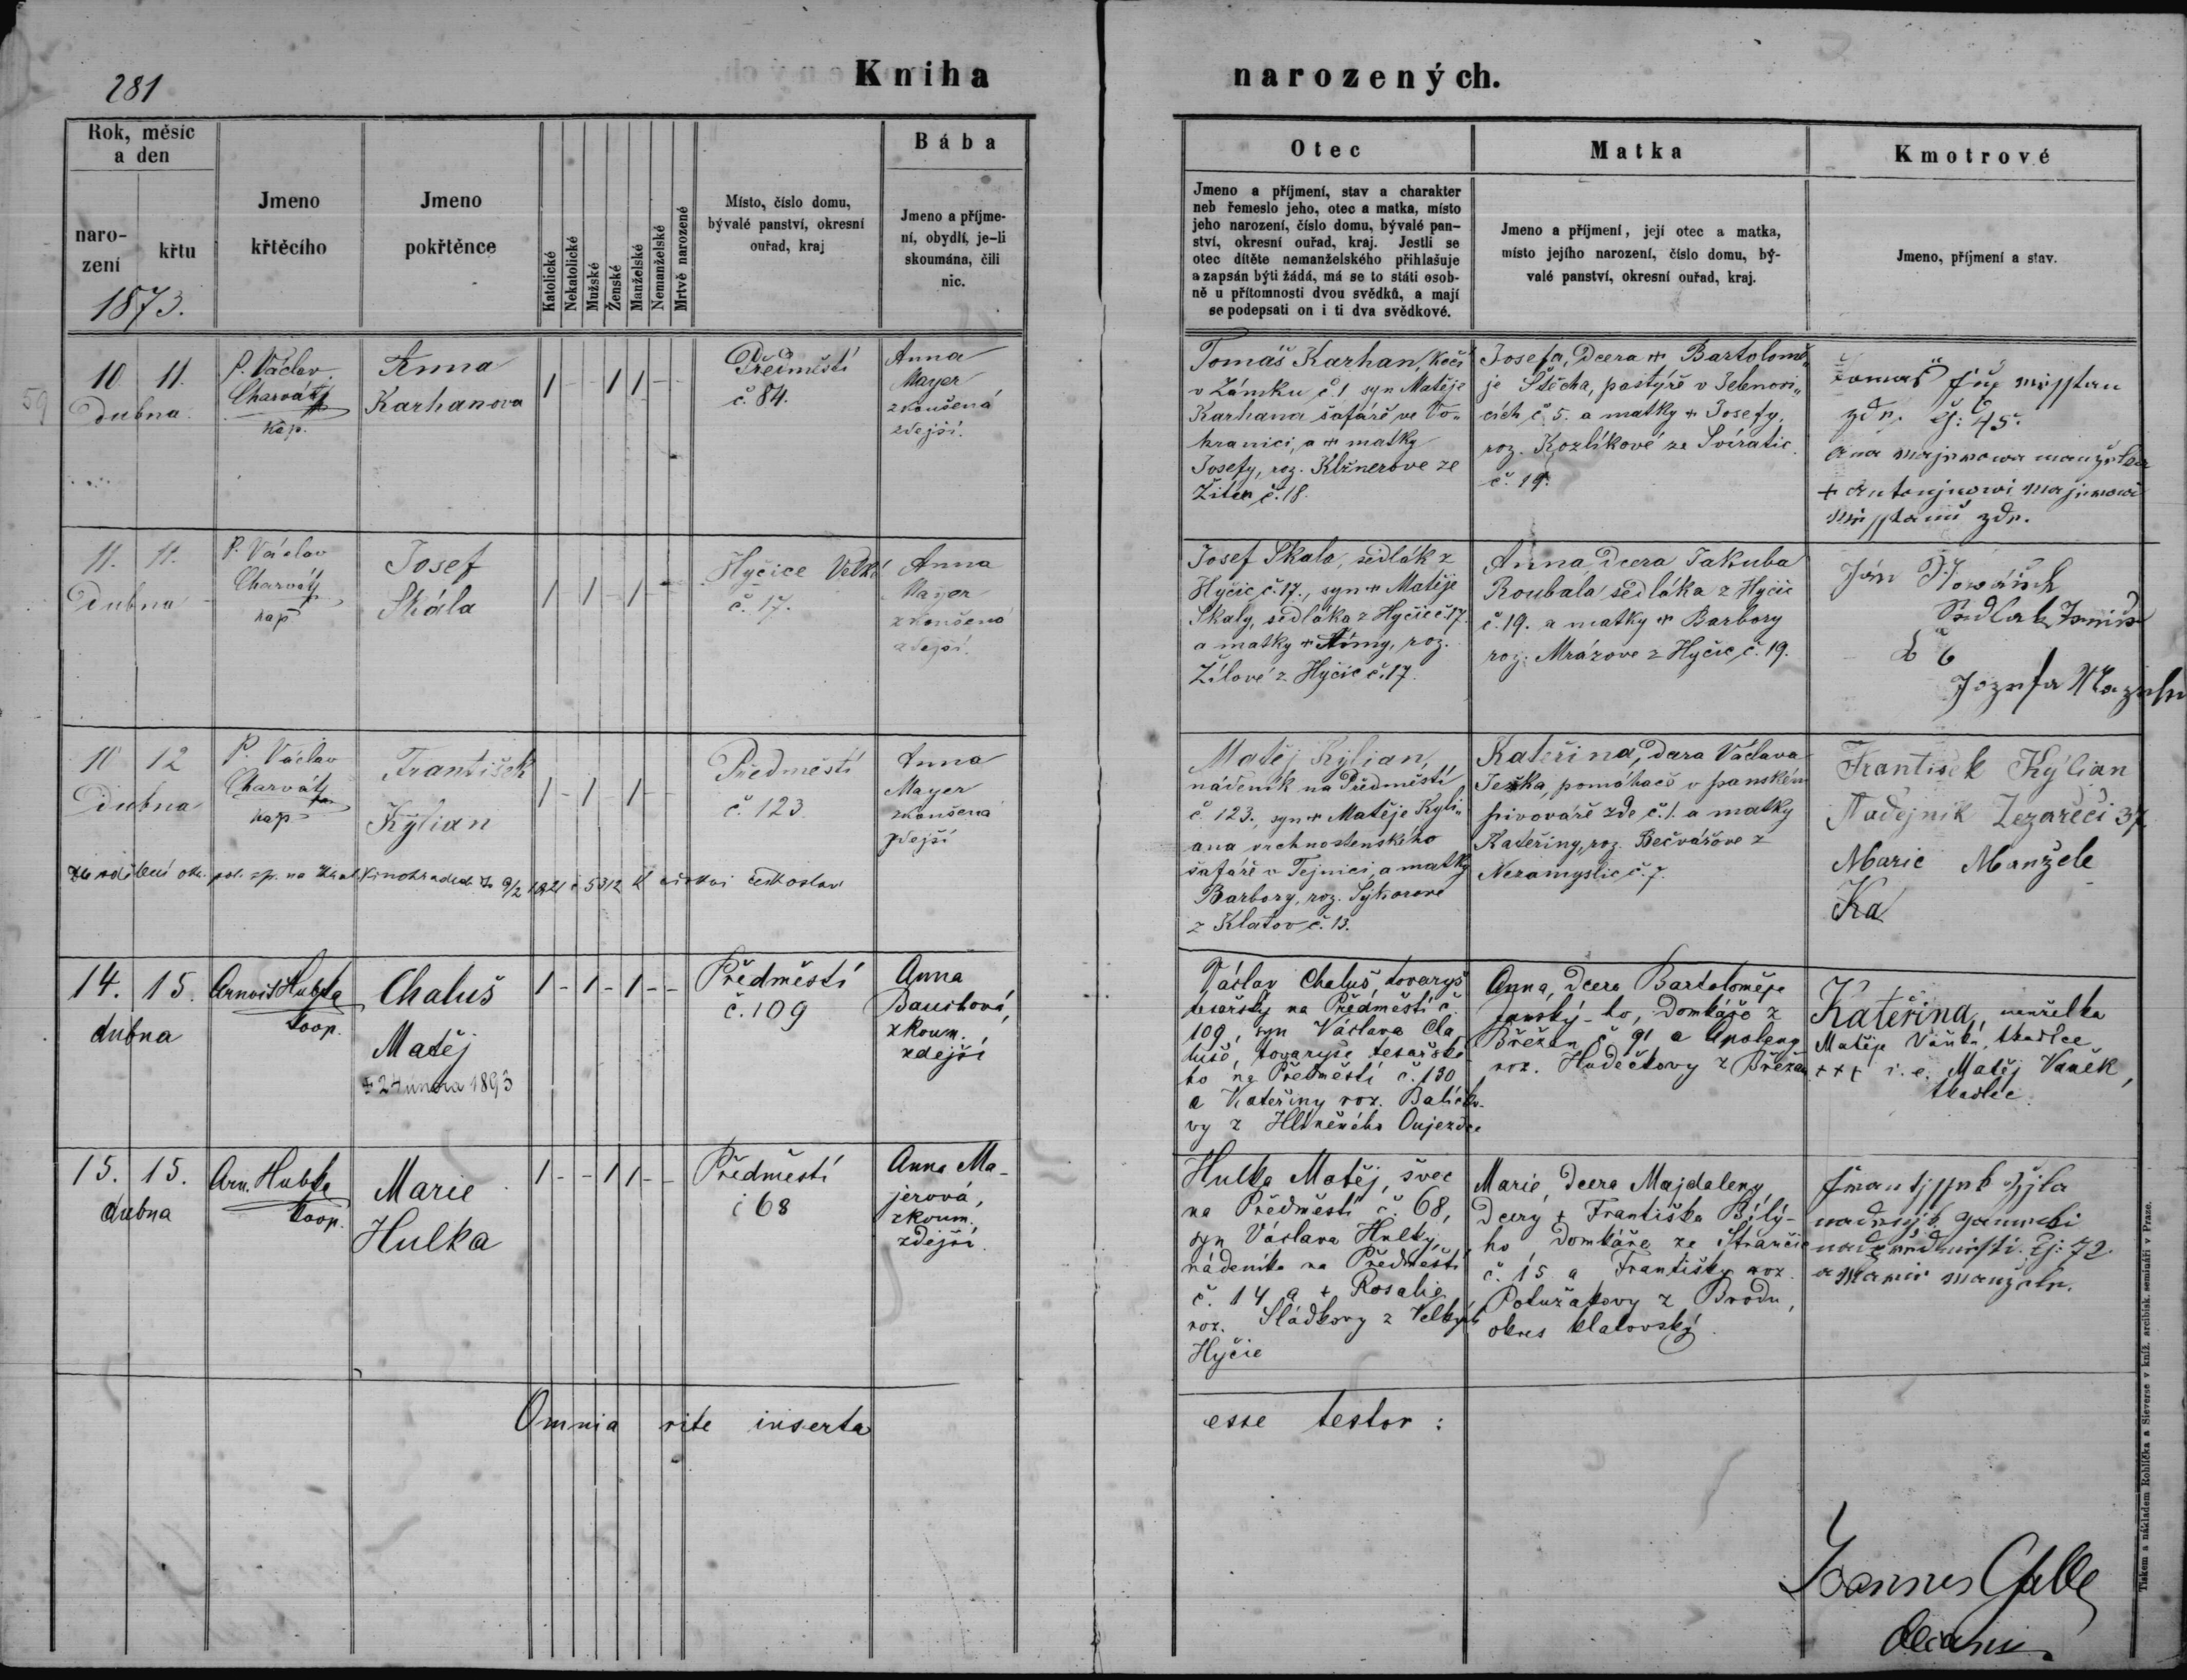 281
Kniha narozených.
Rok, měsíc
a den
naro-
zení
křtu
1873.
Jmeno
křtěcího
Jmeno
pokřtěnce
Katolické
Nekatolické
Mužské
Ženské
Manželské
Nemanželské
Mrtvě narozené
Místo, číslo domu,
bývalé panství, okresní
ouřad, kraj
Bába
Jmeno a příjme-
ní, obydlí, je-li
skoumána, čili
nic.
Otec
Jmeno a příjmení, stav a charakter
neb řemeslo jeho, otec a matka, místo
jeho narození, číslo domu, bývalé pan-
ství, okresní ouřad, kraj. Jestli se
otec dítěte nemanželského přihlašuje
a zapsán býti žádá, má se to státi osob-
ně u přítomnosti dvou svědků, a mají
se podepsati on i ti dva svědkové.
Matka
Jmeno a příjmení, její otec a matka,
místo jejího narození, číslo domu, bý-
valé panství, okresní ouřad, kraj.
Kmotrové
Jmeno, příjmení a stav.
59
10 11.
Dubna
P. Václav
Charvát
kap.
Anna
Karhanova
1 - - 1 1 - -
Předměstí
č. 84.
Anna
Mayer
zkoušená
zdejší.
Tomáš Karhan, kočí
v Zámku č. 1 syn Matěje
Karhana šafáře ve Vo-
hranici, a + matky
Josefy, roz. Klznerove ze
Žitен č. 18.
Josefa, Dcera + Bartolomě-
je Štěcha, pastýře v Jelenovi-
cích č. 5. a matky + Josefy,
roz. Kozlíkové ze Svíratic
č. 19.
Tomáš
zdr. čj: 45.
+ Antonjnowi
zdr.
11. 11.
Dubna
P. Václav
Charvát
kap
Josef
Skála
1 - 1 - 1 - -
Hyčice Velké
č. 17.
Anna
Mayer
zkoušená
zdejší.
Josef Skala, sedlák z
Hyčic č. 17., syn + Matěje
Skaly, sedláka z Hyčic č. 17.
a matky + Anny, roz.
Žílové z Hyčic č. 17.
Anna, Dcera Jakuba
Roubala sedláka z Hyčic
č. 19. a matky + Barbory
roz. Mrázove z Hyčic, č. 19.
Ján
Sedlak
č 6
Jozefa
11 12
Dubna
P. Václav
Charvát
kap
František
Kylian
1 - 1 - 1 - -
Předměstí
č. 123.
Anna
Mayer
zkoušená
zdejší
Matěj Kylian,
nádeník na Předměstí
č. 123., syn + Matěje Kyli-
ana vrchnostenského
šafáře v Tejnici, a matky
Barbory, roz. Sýkorové
z Klatov č. 13.
Kateřina, Dcera Václava
Ješka, pomáhače v panském
pivováře zde č. 1. a matky
Kateřiny, roz. Bečvářove z
Nezamyslic č. 7.
Frantisek Kýlian
Nadejnik Zezařečí 37
Marie Manžele
Ka
14. 15.
dubna
Arnošt Hubka
koop.
Chaluš
Matěj
+ 24 února 1893
1 - 1 - 1 - -
Předměstí
č. 109
Anna
Bauschová,
zkoum.
zdejší
Václav Chaluš, tovaryš
tesařský na Předměstí č.
109, syn Václava Cha-
luše, tovaryše tesařské-
ho na Předměstí č. 130
a Kateřiny roz. Balíčko-
vy z Hliněného Oujezdce
Anna, Dcera Bartoloměje
Janský-ho, Domkáře z
Břežan č 91 a Apoleny
roz. Hudečkovy z Břežan
Kateřina, manželka
Matěje Vaňka, tkadlce
+++ i.e. Matěj Vaněk,
tkadlec.
15. 15.
dubna
Arn. Hubka
koop.
Marie
Hulka
1 - - 1 1 - -
Předměstí
č 68
Anna Ma-
jerová,
zkoum.,
zdejší.
Hulka Matěj, švec
na Předměstí č. 68,
syn Václava Hulky,
nádeníka na Předměstí
č. 14 a + Rosalie
roz. Sládkovy z Velkých
Hyčic
Marie, Dcera Majdaleny
Dcery + Františka Bílý-
ho Domkáře ze Stránčic
č. 15 a Františky roz.
Potužakovy z Brodu,
okres klatovský.
čj: 72.
Omnia rite inserta esse testor:
Joannes Galle
decanus
Tiskem a nákladem Rohlíčka a Sieverse v kníž. arcibisk. semináři v Praze.